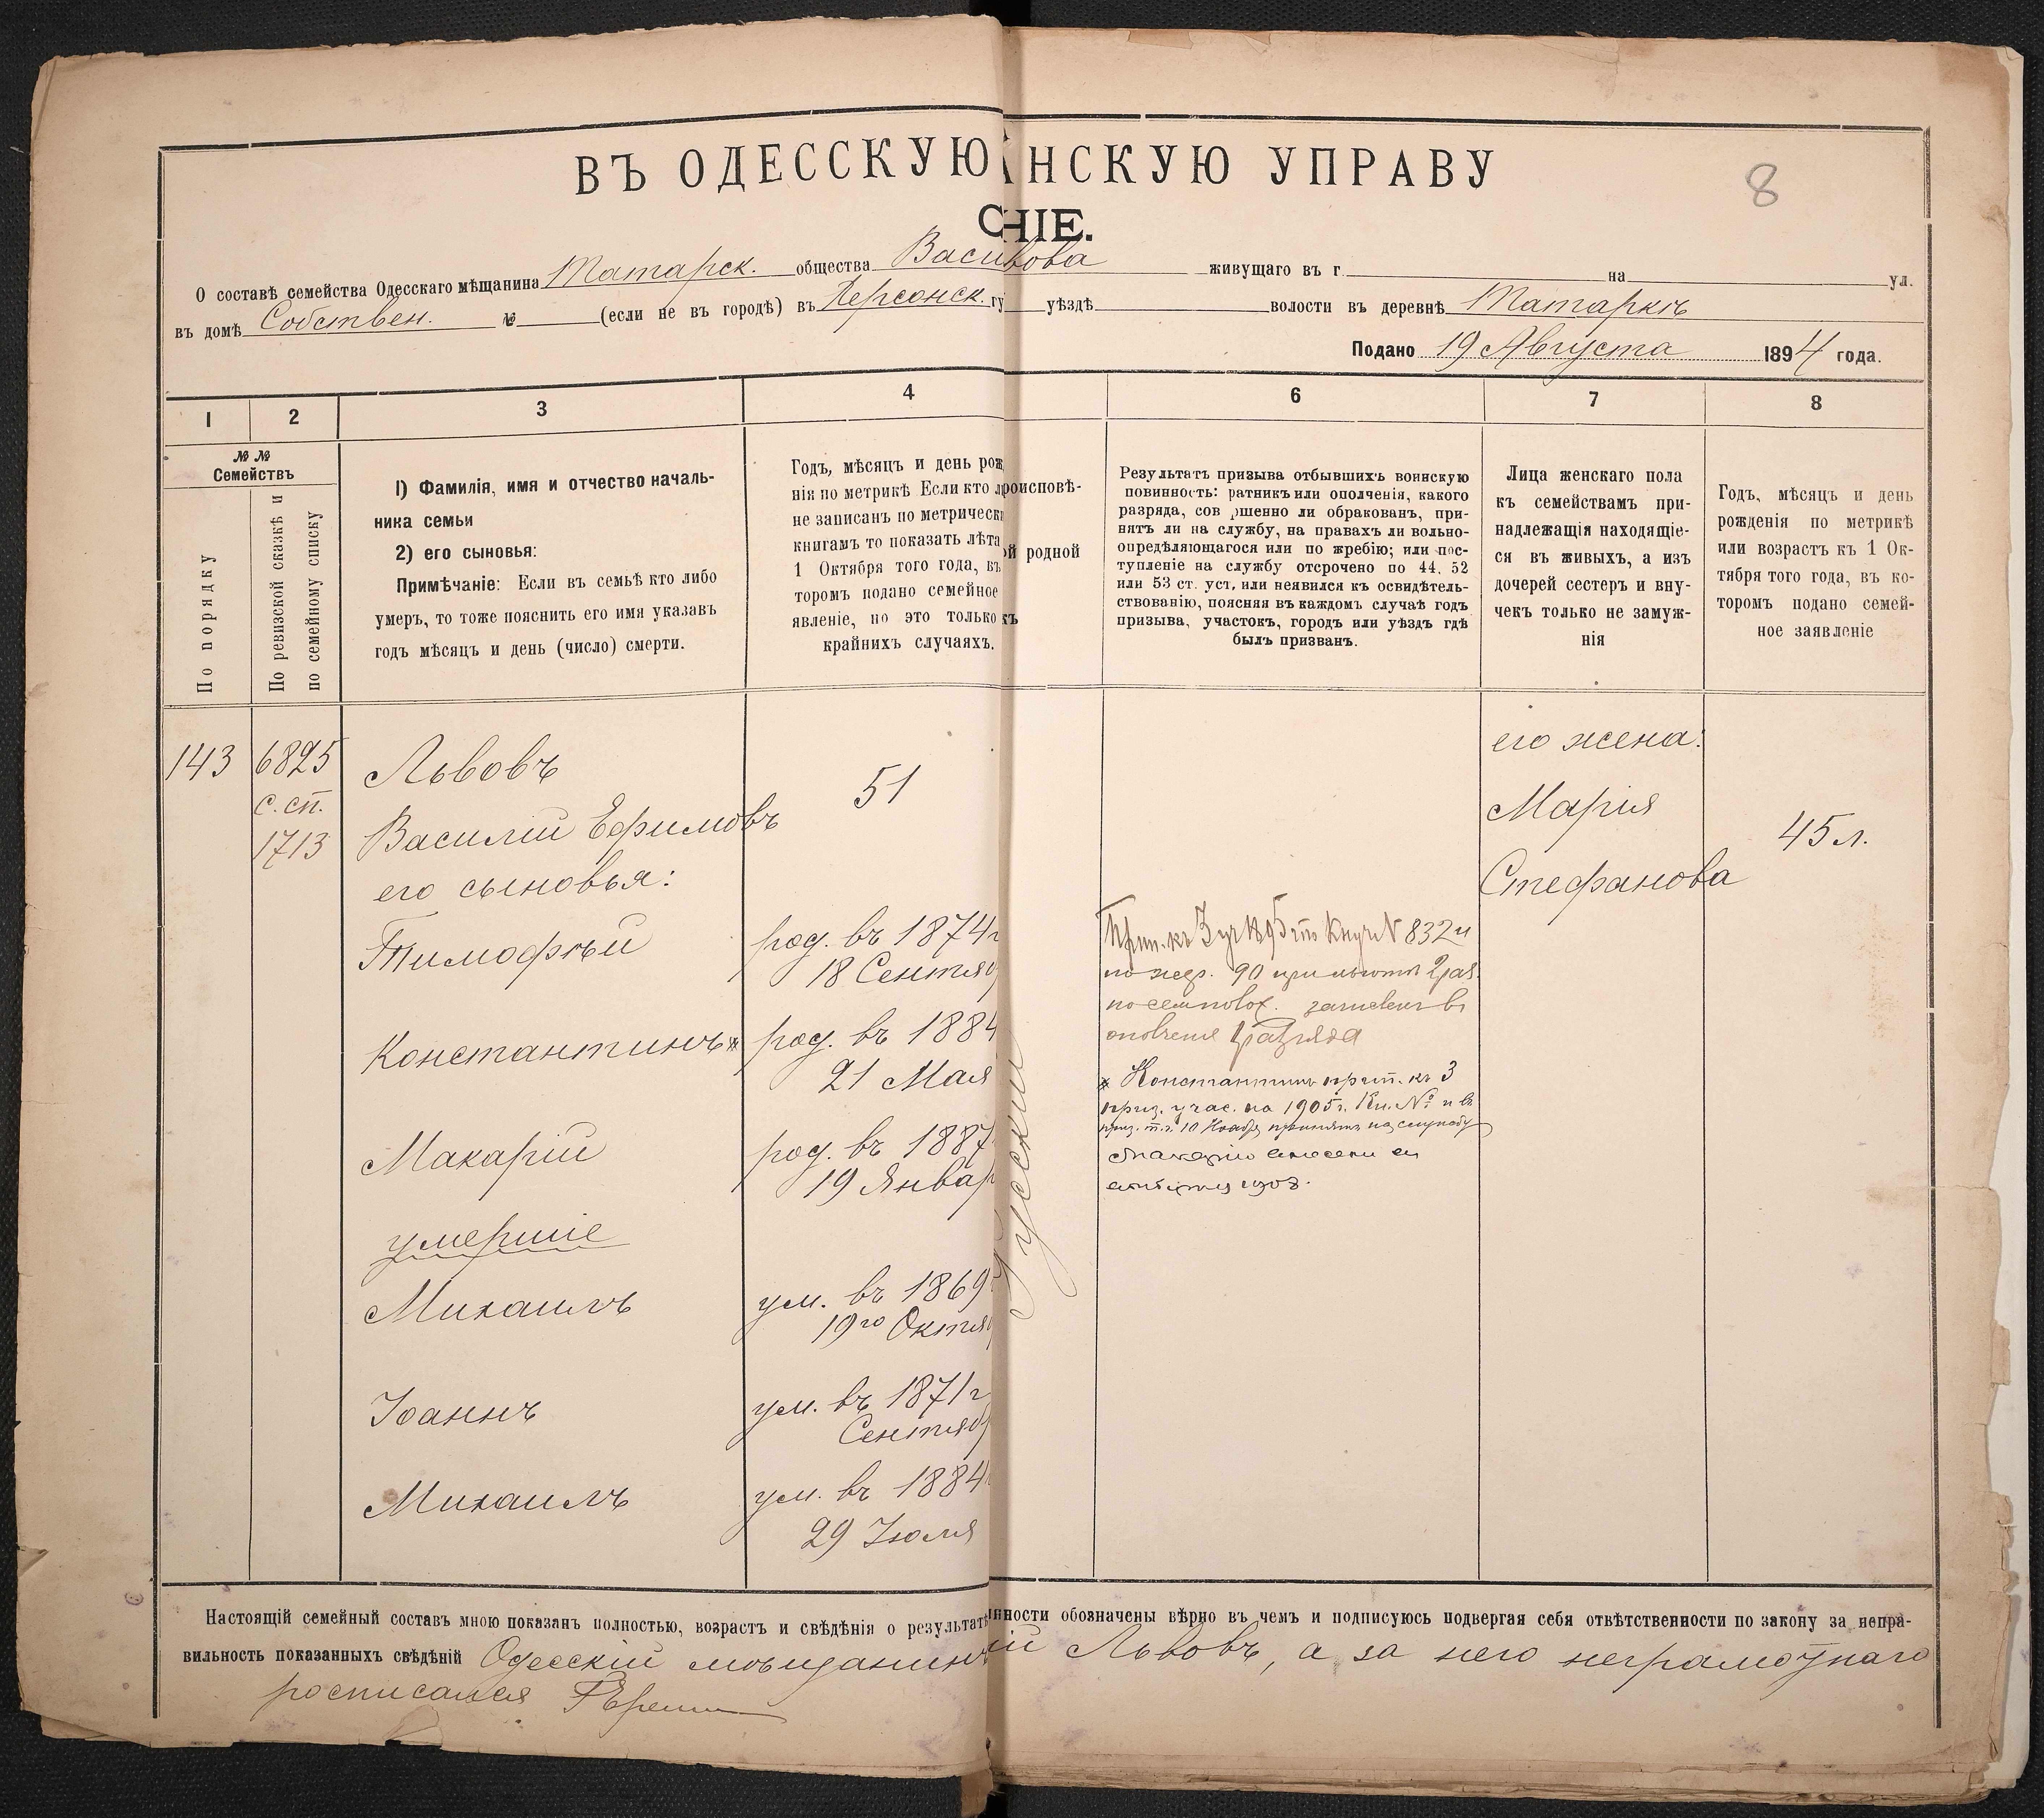 ВЪ ОДЕССКУЮ НСКУЮ УПРАВУ
8
НІЕ.
О составѣ семейства Одесскаго мѣщанина Татарск. общества Васи вова живущаго въ г на ул.
въ домѣ Собствен. № (если не въ городѣ) въ Херсонск. гу уѣздѣ волости въ деревнѣ Татаркѣ
Подано 19 Августа 1894 года.
1 2 3 4 6 7 8
№ №
Семействъ
По порядку
По ревизской сказкѣ и
по семейному списку
1) Фамилія, имя и отчество началь-
ника семьи
2) его сыновья:
Примѣчаніе: Если въ семьѣ кто либо
умеръ, то тоже пояснить его имя указавъ
годъ мѣсяцъ и день (число) смерти.
Годъ, мѣсяцъ и день рож
нія по метрикѣ Если кто л
не записанъ по метрическ
книгамъ то показать лѣта
1 Октября того года, въ
торомъ подано семейное
явленіе, но это только
крайнихъ случаяхъ.
роисповѣ-
ой родной
къ
Результатъ призыва отбывшихъ воинскую
повинность: ратникъ или ополченія, какого
разряда, совершенно ли обракованъ, при-
нятъ ли на службу, на правахъ ли вольно-
опредѣляющагося или по жребію; или пос-
тупленіе на службу отсрочено по 44, 52
или 53 ст. уст. или неявился къ освидѣтель-
ствованію, поясняя въ каждомъ случаѣ годъ
призыва, участокъ, городъ или уѣздъ гдѣ
былъ призванъ.
Лица женскаго пола
къ семействамъ при-
надлежащія находящіе-
ся въ живыхъ, а изъ
дочерей сестеръ и вну-
чекъ только не замуж-
нія
Годъ, мѣсяцъ и день
рожденія по метрикѣ
или возрастъ къ 1 Ок-
тября того года, въ ко-
торомъ подано семей-
ное заявленіе
143
6825
с. сп.
1713
Львовъ
Василій Ефимовъ
51
его сыновья:
Тимофѣй
род. въ 1874 г
18 Сентяб
Константинъ *
род. въ 1884
21 Мая
Макарій
род. въ 1887
19 Январ
умершіе
Михаилъ
ум. въ 1869
19го Октяб
Іоаннъ
ум. въ 1871 г
Сентяб
Михаилъ
ум. въ 1884
29 Іюля
Русскій
Прип. къ 3 уч 1895 № 832 и
по жер. 90 при льготѣ 2 раз.
зачислен в
ополчение 1 разряда
* Константинъ прип. къ 3
приз. учас. на 1905 г. Кн. № и въ
приз. т. г. 10 Нояб. принятъ на службу
Макарій внесенъ въ
1908.
его жена:
Марія
Стефанова
45 л.
Настоящій семейный составъ мною показанъ полностью, возрастъ и свѣдѣнія о результатѣ нности обозначены вѣрно въ чемъ и подписуюсь подвергая себя отвѣтственности по закону за непра-
вильность показанныхъ свѣдѣній Одесскій мѣщанинъ ій Львовъ, а за него неграмотнаго
росписался